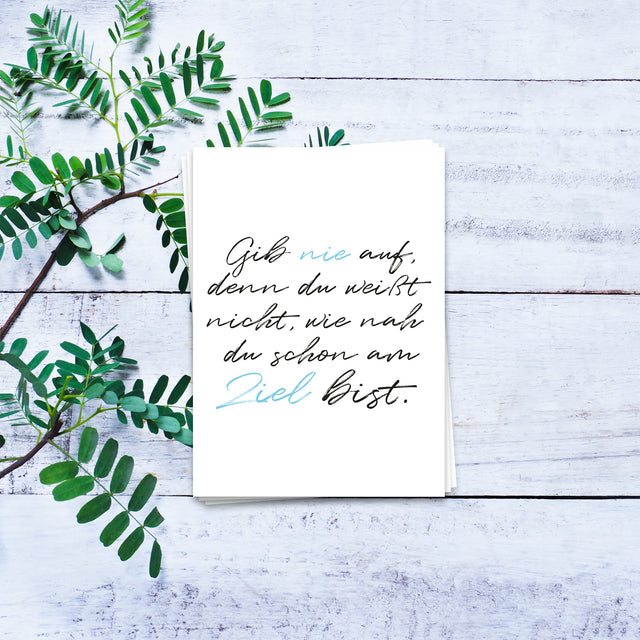 Gib nie auf,
denn du weißt
nicht, wie nah
du schon am
Ziel bist.